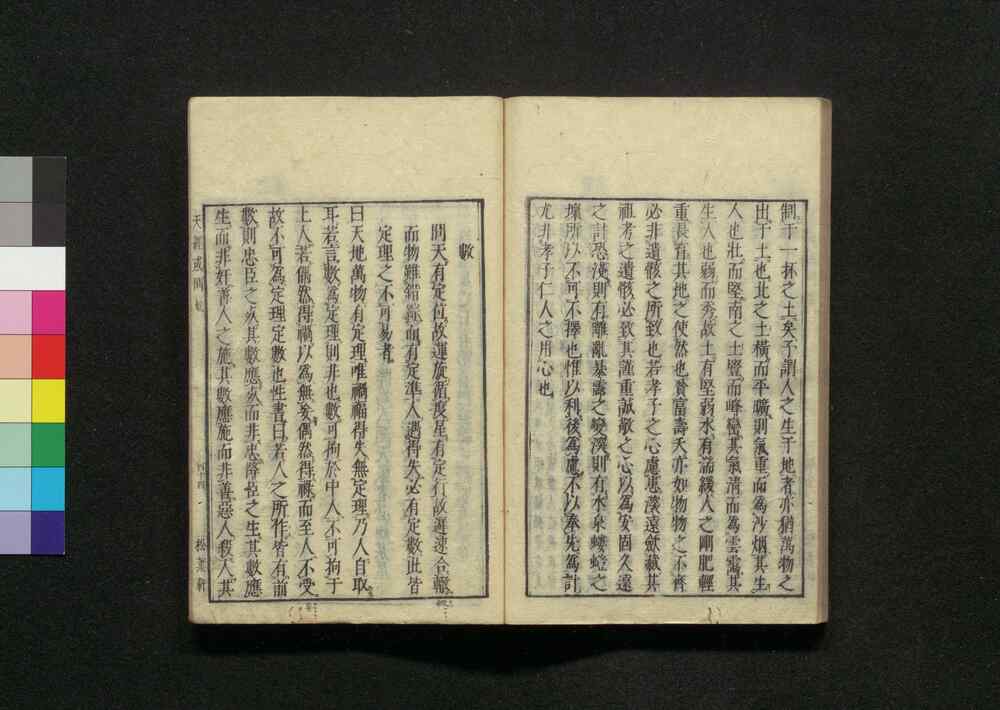 制于一抔之土矣予謂人之生于地者亦猶萬物之
出于土也北之土橫而平曠則氣重而為沙烟其生
人也壯而堅南之土豎而峰巒其氣清而為雲靄其
生人也弱而秀故土有堅弱水有湍緩人之剛肥輕
重長育其地之使然也貧富壽夭亦如物物之不齊
必非遺骸之所致也若孝子之心慮患深遠歛藏其
祖考之遺骸必致其謹重誠敬之心以為安固久遠
之計恐淺則有離亂暴露之變深則有水泉螻螘之
壞所以不可不擇也惟以利後為慮不以奉先為計
尤非孝子仁人之用心也
數
問天有定位故運旋循度星有定行故遲速合轍
而物雖錯綜而有定準人遇得失必有定數此皆
定理之不可易者
曰天地萬物有定理唯禍福得失無定理乃人自取
耳若言數為定理則非也數可拘於中人不可拘于
上人若偶然得禍以為無妄偶然得祿而至人不受
故不可為定理定數也性書曰若人之所作皆有前
數則忠臣之死其數應死而非忠辱臣之生其數應
生而非奸善人之施其數應施而非善惡人殺人其
天經或問
四十四
松葉軒